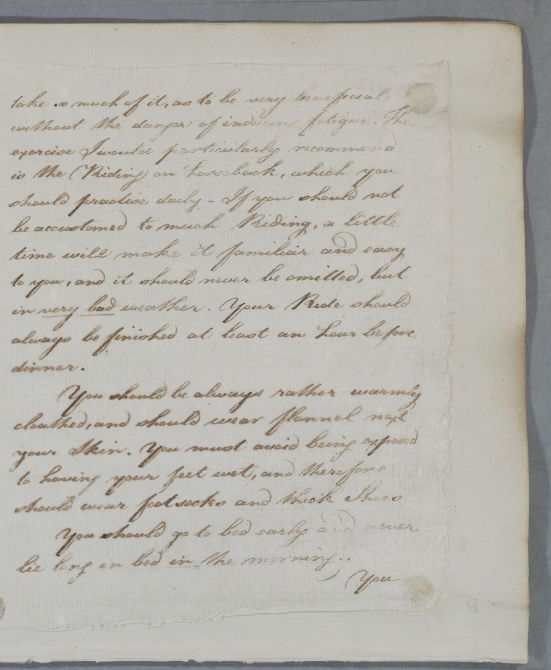 take so much of it, as to be very beneficial
without the danger of inducing fatigue. The
exercise I would particularly recommend
is the Riding on horseback, which you
should practise daily - If you should not
be accustomed to much Riding, a little
time will make it familiar and easy
to you, and it should never be omitted, but
in very bad weather. Your Ride should
always be finished at least an hour before
dinner.
You should be always rather warmly
cloathed, and should wear flannel next
your Skin. You must avoid being exposed
to having your feet wet, and therefore
should wear footsocks and thick Shoes
You should go to bed early and never
lie long in bed in the morning..
You